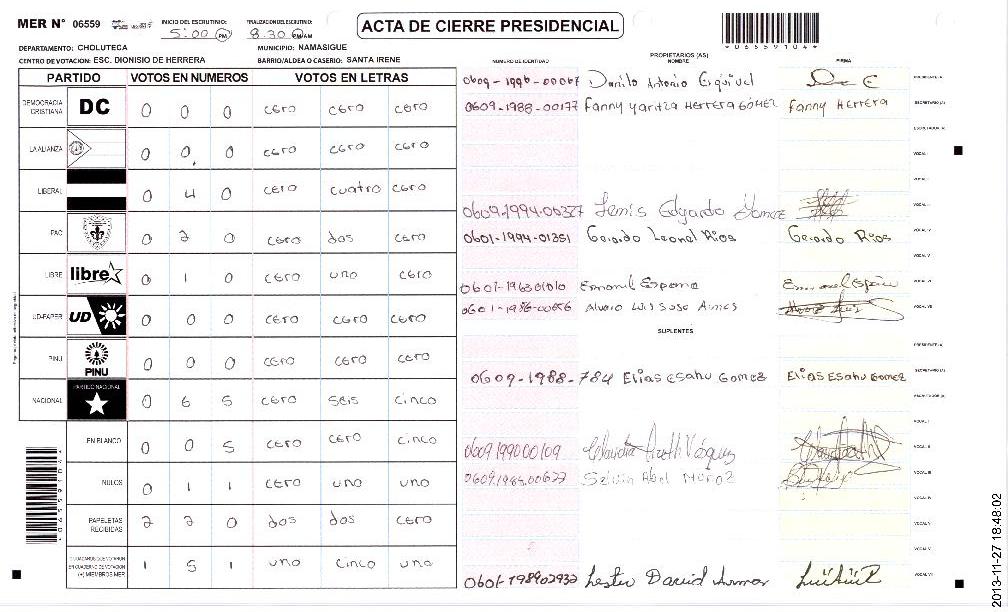 MER N° 06559
INICIO DEL ESCRUTINIO: 5:00 PM
FINALIZACION DEL ESCRUTINIO: 8:30 PM/AM
ACTA DE CIERRE PRESIDENCIAL
*0655910 4*
DEPARTAMENTO: CHOLUTECA
MUNICIPIO: NAMASIGUE
CENTRO DE VOTACION: ESC. DIONISIO DE HERRERA
BARRIO/ALDEA O CASERIO: SANTA IRENE
PARTIDO VOTOS EN NUMEROS VOTOS EN LETRAS
DEMOCRACIA CRISTIANA DC 0 0 0 cero cero cero
LA ALIANZA 0 0 0 cero cero cero
LIBERAL 0 4 0 cero cuatro cero
PAC 0 2 0 cero dos cero
LIBRE libre 0 1 0 cero uno cero
UD-FAPER UD 0 0 0 cero cero cero
PINU PINU 0 0 0 cero cero cero
NACIONAL PARTIDO NACIONAL 0 6 5 cero seis cinco
EN BLANCO 0 0 5 cero cero cinco
NULOS 0 1 1 cero uno uno
PAPELETAS RECIBIDAS 2 2 0 dos dos cero
CIUDADANOS QUE VOTARON EN CUADERNO DE VOTACION (+) MIEMBROS MER 1 5 1 uno cinco uno
NUMERO DE IDENTIDAD PROPIETARIOS (AS) NOMBRE FIRMA
0609-1990-00067 Danilo Antonio Esquivel PRESIDENTE (A)
0609-1988-00177 Fanny Yaritza HERRERA GÓMEZ Fanny HERRERA SECRETARIO (A)
ESCRUTADOR (A)
VOCAL I
VOCAL II
0609-1994-00327 Lenis Edgardo Gomez VOCAL III
0601-1994-01351 Gerardo Leonel Rios Gerardo Rios VOCAL IV
VOCAL V
VOCAL VI
0601-1986-00656 Alvaro Luis VOCAL VII
SUPLENTES
PRESIDENTE (A)
0609-1988-784 Elias Esahu Gomez Elias Esahu Gomez SECRETARIO (A)
ESCRUTADOR (A)
VOCAL I
0609199000109 Claudia Vásquez VOCAL II
Abel VOCAL III
VOCAL IV
VOCAL V
VOCAL VI
0601-198902932 Lester David VOCAL VII
2013-11-27 18:48:02